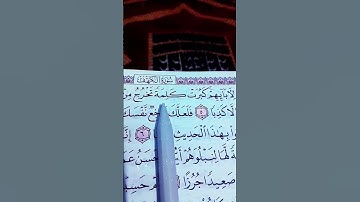 سُورَةُ الكَهْفِ
لِأَبَآئِهِمْ كَبُرَتْ كَلِمَةً تَخْرُجُ مِنْ
إِلَّا كَذِبًا ٥ فَلَعَلَّكَ نَّفْسَكَ
بِهَٰذَا ٱلْحَدِيثِ ٦
لَّهَا لِنَبْلُوَهُمْ
صَعِيدًا جُرُزًا